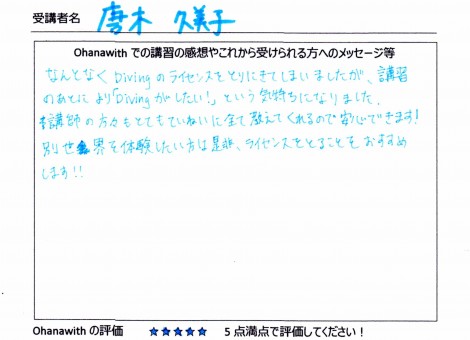 受講者名 唐木 久美子
Ohanawith での講習の感想やこれから受けられる方へのメッセージ等
なんとなく Divingのライセンスをとりにきてしまいましたが、講習
のあとに より「Divingがしたい!」という気持ちになりました。
講師の方々もとてもていねいに全て教えてくれるので安心できます!
別世界を体験したい方は是非、ライセンスをとることをおすすめ
します!!
Ohanawith の評価 ★★★★★ 5 点満点で評価してください!